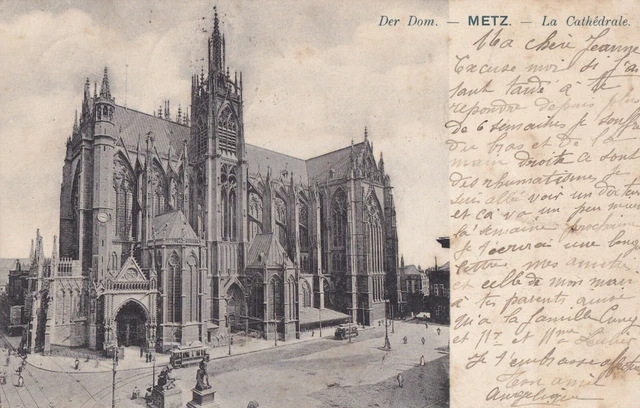 Der Dom. — METZ. — La Cathédrale.
Ma chère Jeanne
Excuse moi si j'ai
tant tardé à te
repondre depuis plus
de 6 semaines je souffre
du bras et de la
main droite
des rhumatismes je
suis allé voir un docteur
et ça va un peu mieux
la semaine prochaine
je t'ecrirai une longue
lettre mes amitiés
et celle de mon mari
à tes parents ainsi
qu'à la famille
et Mr et Mme
Je t'embrasse
Ton amie
Angelique